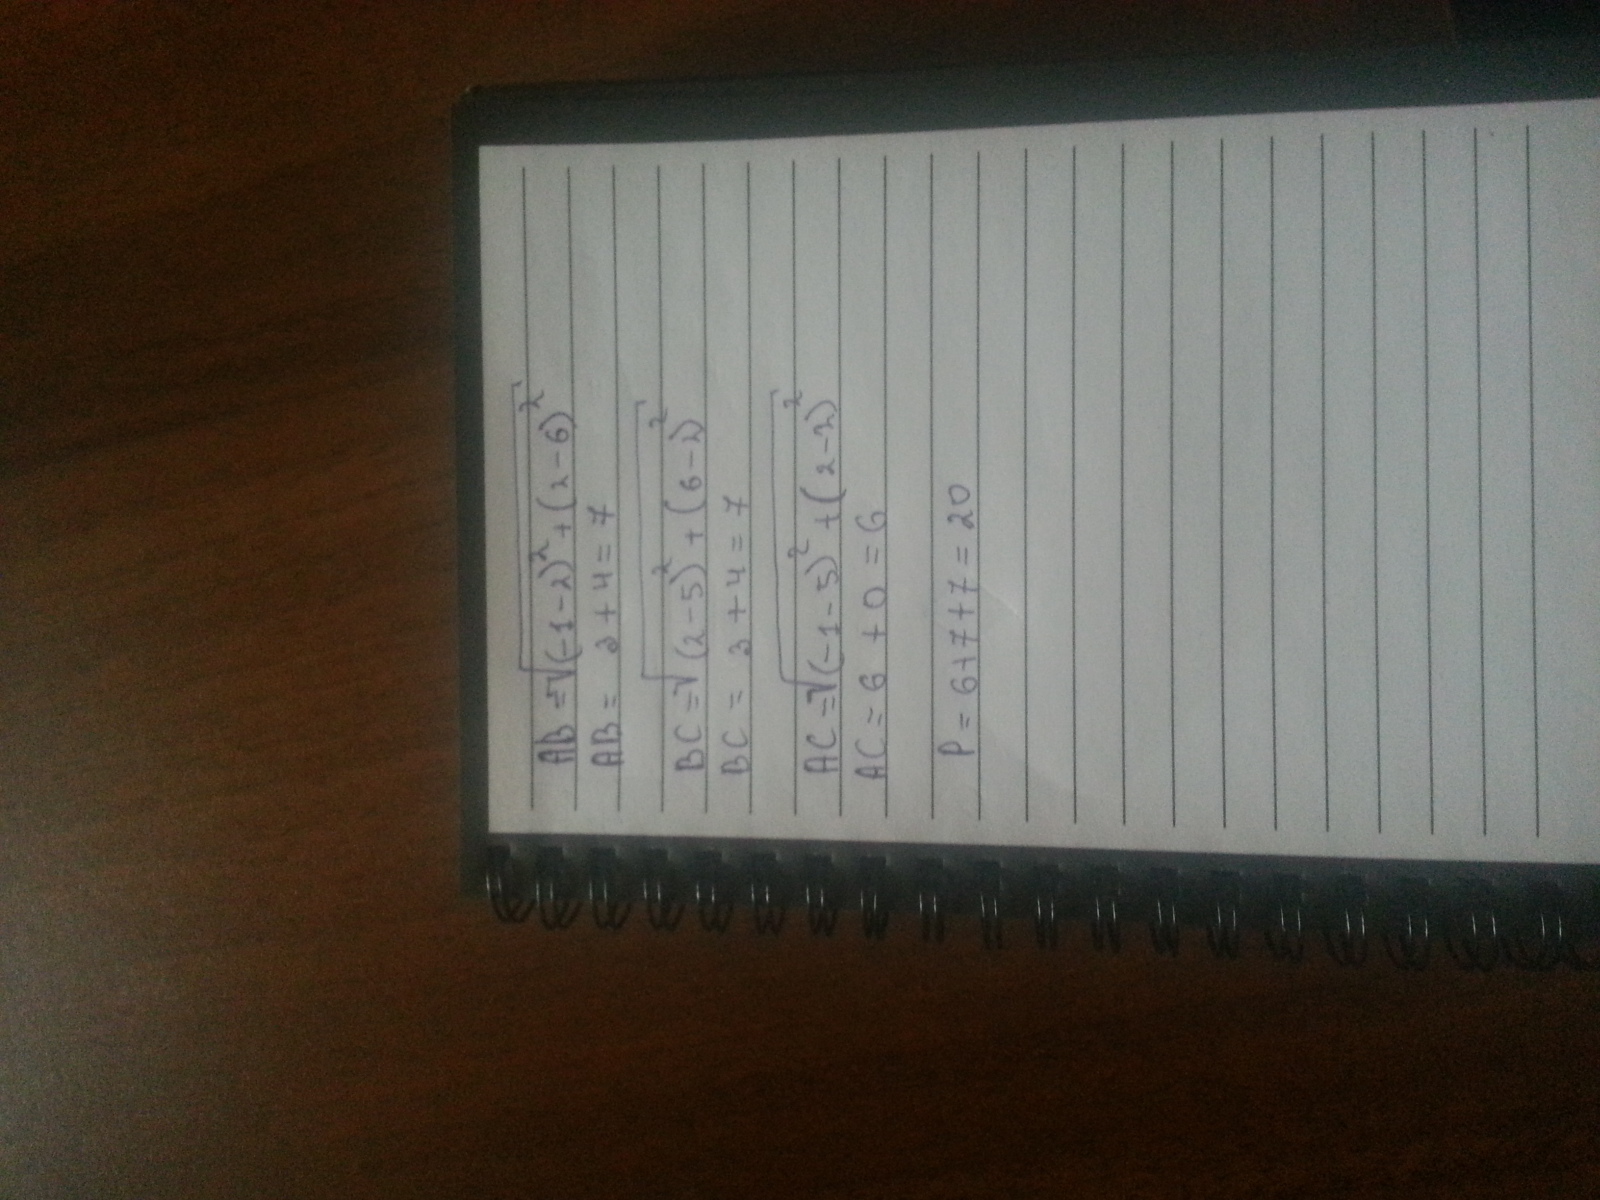 AB = √(-1-2)² + (2-6)²
AB = 3 + 4 = 7
BC = √(2-5)² + (6-2)²
BC = 3 + 4 = 7
AC = √(-1-5)² + (2-2)²
AC = 6 + 0 = 6
P = 6+7+7 = 20